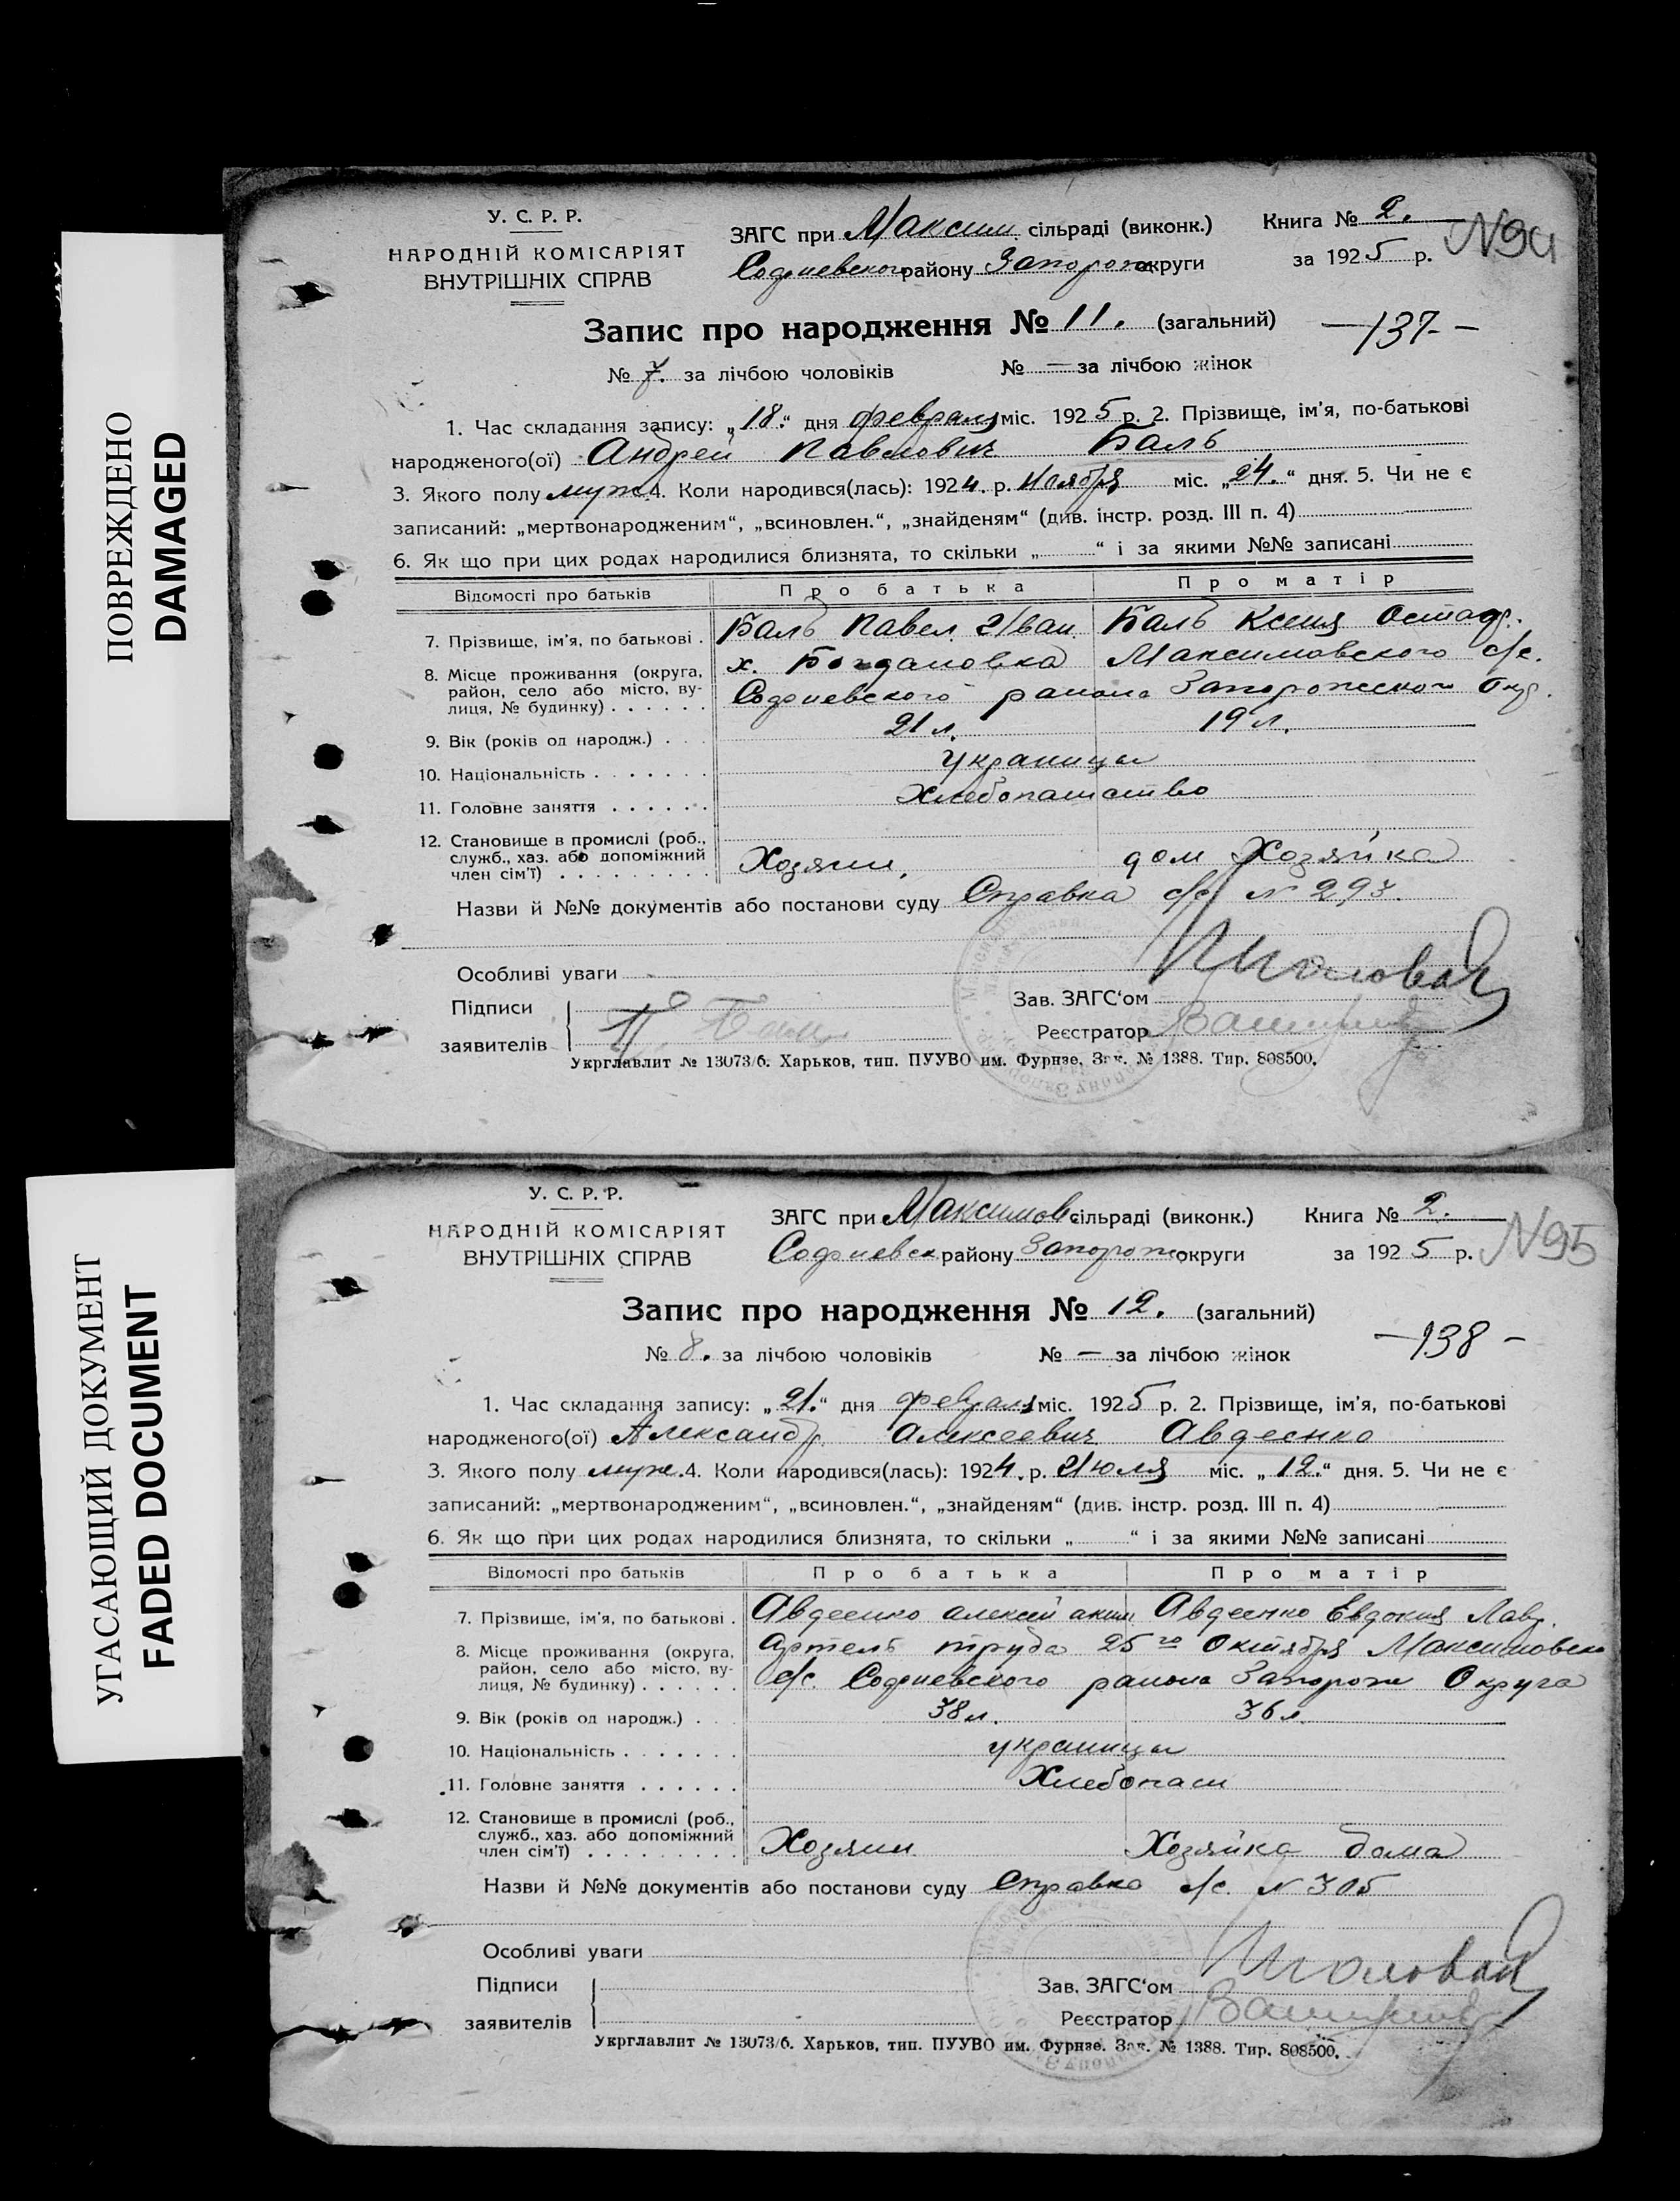 ПОВРЕЖДЕНО
DAMAGED
У. С. Р. Р.
НАРОДНІЙ КОМІСАРІЯТ
ВНУТРІШНІХ СПРАВ
ЗАГС при Максим. сільраді (виконк.)
Софиевского району Запорож округи
Книга № 2.
за 1925 р.
N94
Запис про народження № 11. (загальний)
—137-—
№ 7. за лічбою чоловіків № — за лічбою жінок
1. Час складання запису: „18.“ дня февраля міс. 1925 р. 2. Прізвище, ім'я, по-батькові
народженого(ої) Андрей Павлович Баль
3. Якого полу муж. 4. Коли народився(лась): 1924. р. Ноября міс. „24.“ дня. 5. Чи не є
записаний: „мертвонародженим“, „всиновлен.“, „знайденям“ (див. інстр. розд. III п. 4)
6. Як що при цих родах народилися близнята, то скільки „ “ і за якими №№ записані
Відомості про батьків Про батька Про матір
7. Прізвище, ім'я, по батькові . Баль Павел Иван Баль Ксения Остаф.
8. Місце проживання (округа, х. Богдановка Максимовского с/с.
район, село або місто, ву- Софиевского района Запорожского Окр.
лиця, № будинку) . . . . . .
9. Вік (років од народж.) . . . 21 л. 19 л.
10. Національність . . . . . . . украинцы
11. Головне заняття . . . . . . Хлебопашество
12. Становище в промислі (роб.,
служб., хаз. або допоміжний Хозяин. дом Хозяйка
член сім'ї) . . . . . . . . .
Назви й №№ документів або постанови суду Справка с/с N 293.
Особливі уваги
Підписи
заявителів
Зав. ЗАГС'ом
Реєстратор
Укрглавлит № 13073/6. Харьков, тип. ПУУВО им. Фурнзе, Зак. № 1388. Тир. 808500.
УГАСАЮЩИЙ ДОКУМЕНТ
FADED DOCUMENT
У. С. Р. Р.
НАРОДНІЙ КОМІСАРІЯТ
ВНУТРІШНІХ СПРАВ
ЗАГС при Максимов. сільраді (виконк.)
Софиевск району Запорож округи
Книга № 2.
за 1925 р.
N95
Запис про народження № 12. (загальний)
—138—
№ 8. за лічбою чоловіків № — за лічбою жінок
1. Час складання запису: „21.“ дня февраля міс. 1925 р. 2. Прізвище, ім'я, по-батькові
народженого(ої) Александр. Алексеевич Авдеенко
3. Якого полу муж. 4. Коли народився(лась): 1924. р. Июля міс. „12.“ дня. 5. Чи не є
записаний: „мертвонародженим“, „всиновлен.“, „знайденям“ (див. інстр. розд. III п. 4)
6. Як що при цих родах народилися близнята, то скільки „ “ і за якими №№ записані
Відомості про батьків Про батька Про матір
7. Прізвище, ім'я, по батькові . Авдеенко Алексей Аким Авдеенко Евдокия Лавр.
8. Місце проживання (округа, Артель труда 25го Октября Максимовско
район, село або місто, ву- с/с. Софиевского района Запорож Округа
лиця, № будинку) . . . . . .
9. Вік (років од народж.) . . . 38 л. 36 л.
10. Національність . . . . . . . украинцы
11. Головне заняття . . . . . . Хлебопаш
12. Становище в промислі (роб.,
служб., хаз. або допоміжний Хозяин Хозяйка дома
член сім'ї) . . . . . . . . .
Назви й №№ документів або постанови суду Справка с/с. N 305
Особливі уваги
Підписи
заявителів
Зав. ЗАГС'ом
Реєстратор
Укрглавлит № 13073/6. Харьков, тип. ПУУВО им. Фурнзе. Зак. № 1388. Тир. 808500.